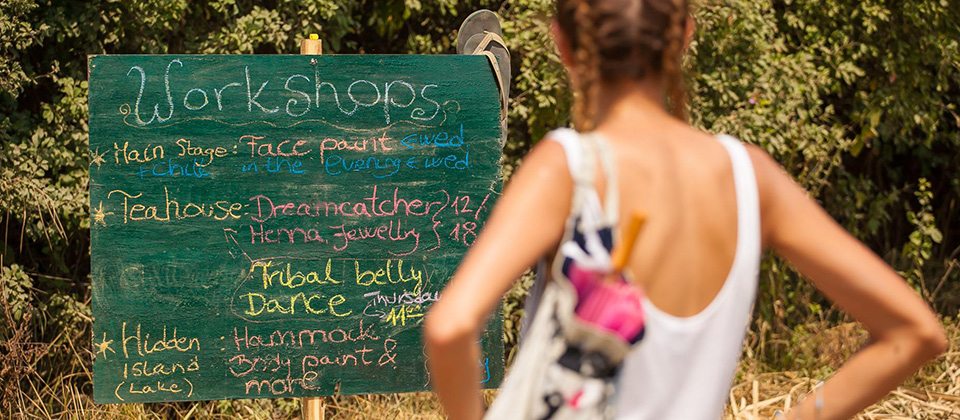 Workshops
Main Stage: Face paint & wed
+ Chile in the evening & wed
Teahouse: Dreamcatcher } 12/
Henna, Jewellry } 18
Tribal belly
Dance Thursday
Hidden : Hammock
Island Body paint &
(Lake) more